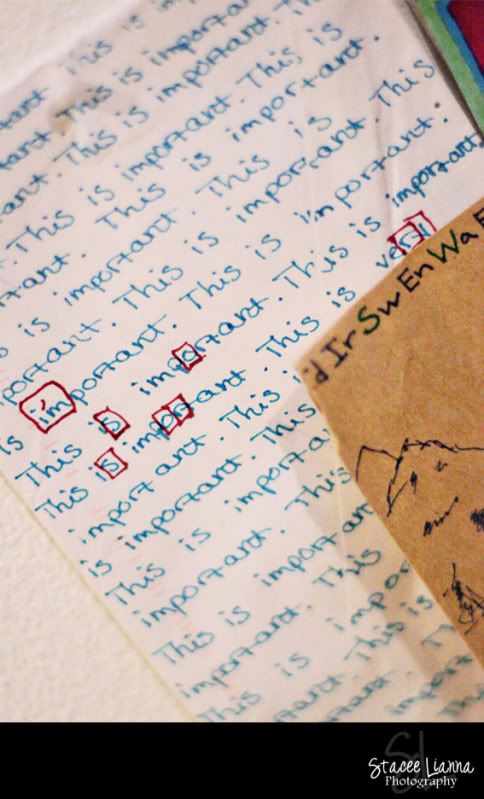 tant This is
tant. This is important.
tant. This is important. This is
. This is important. This is
tant. This is important. This
is important. This is important.
portant. This is important. This is important.
is important. This is very
This is important. This is
This is important. This
important. This
is important. This
This is
important. This
This is important
important. This
This is
important
d Ir Sw En Wa E
Stacee Lianna
Photography